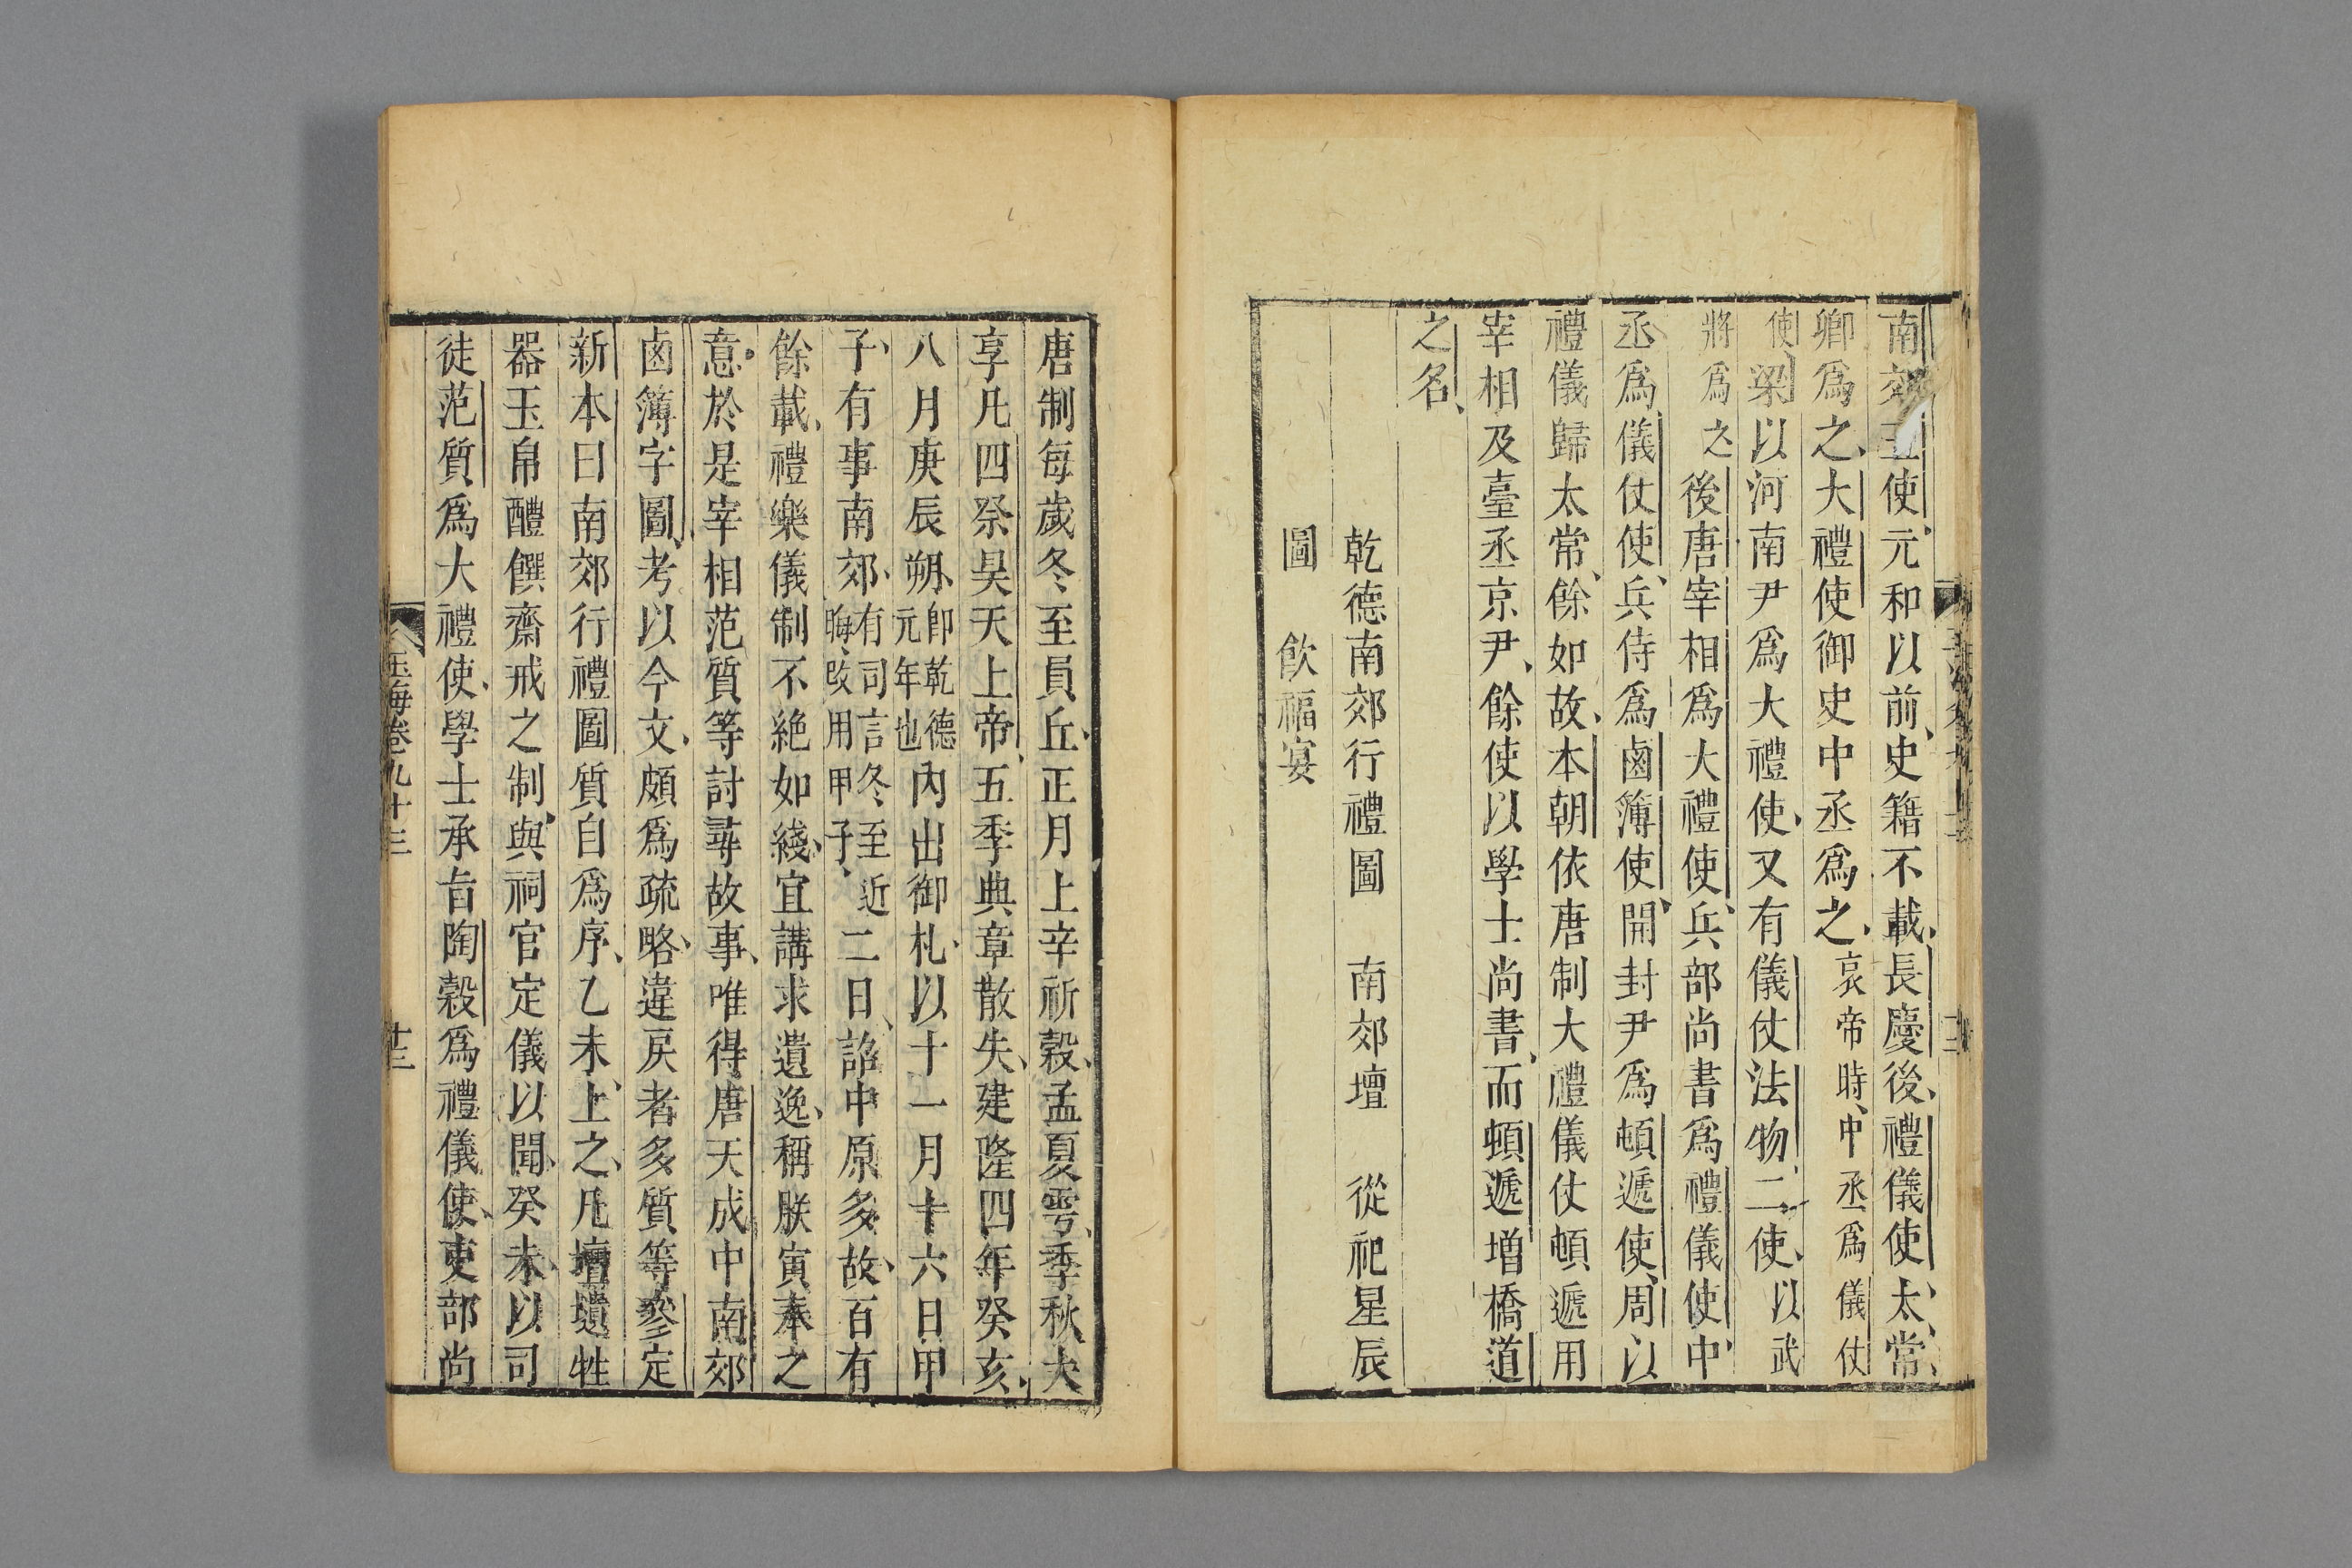 南郊五使元和以前史籍不載長慶後禮儀使太常
卿爲之大禮使御史中丞爲之哀帝時中丞爲儀仗
使梁以河南尹爲大禮使又有儀仗法物二使以武
將爲之後唐宰相爲大禮使兵部尚書爲禮儀使中
丞爲儀仗使兵侍爲鹵簿使開封尹爲頓遞使周以
禮儀歸太常餘如故本朝依唐制大禮儀仗頓遞用
宰相及臺丞京尹餘使以學士尚書而頓遞增橋道
之名
乾德南郊行禮圖 南郊壇 從祀星辰
圖 飲福宴
唐制每歲冬至員丘正月上辛祈穀孟夏雩季秋大
享凡四祭昊天上帝五季典章散失建隆四年癸亥
八月庚辰朔卽乾德元年也內出御札以十一月十六日甲
子有事南郊有司言冬至近晦改用甲子二日詔中原多故百有
餘載禮樂儀制不絶如綫宜講求遺逸稱朕寅奉之
意於是宰相范質等討尋故事唯得唐天成中南郊
鹵簿字圖考以今文頗爲疏略違戾者多質等參定
新本曰南郊行禮圖質自爲序乙未上之凡壇壝牲
器玉帛醴饌齋戒之制與祠官定儀以聞癸未以司
徒范質爲大禮使學士承旨陶穀爲禮儀使吏部尚
玉海卷九十三
十三